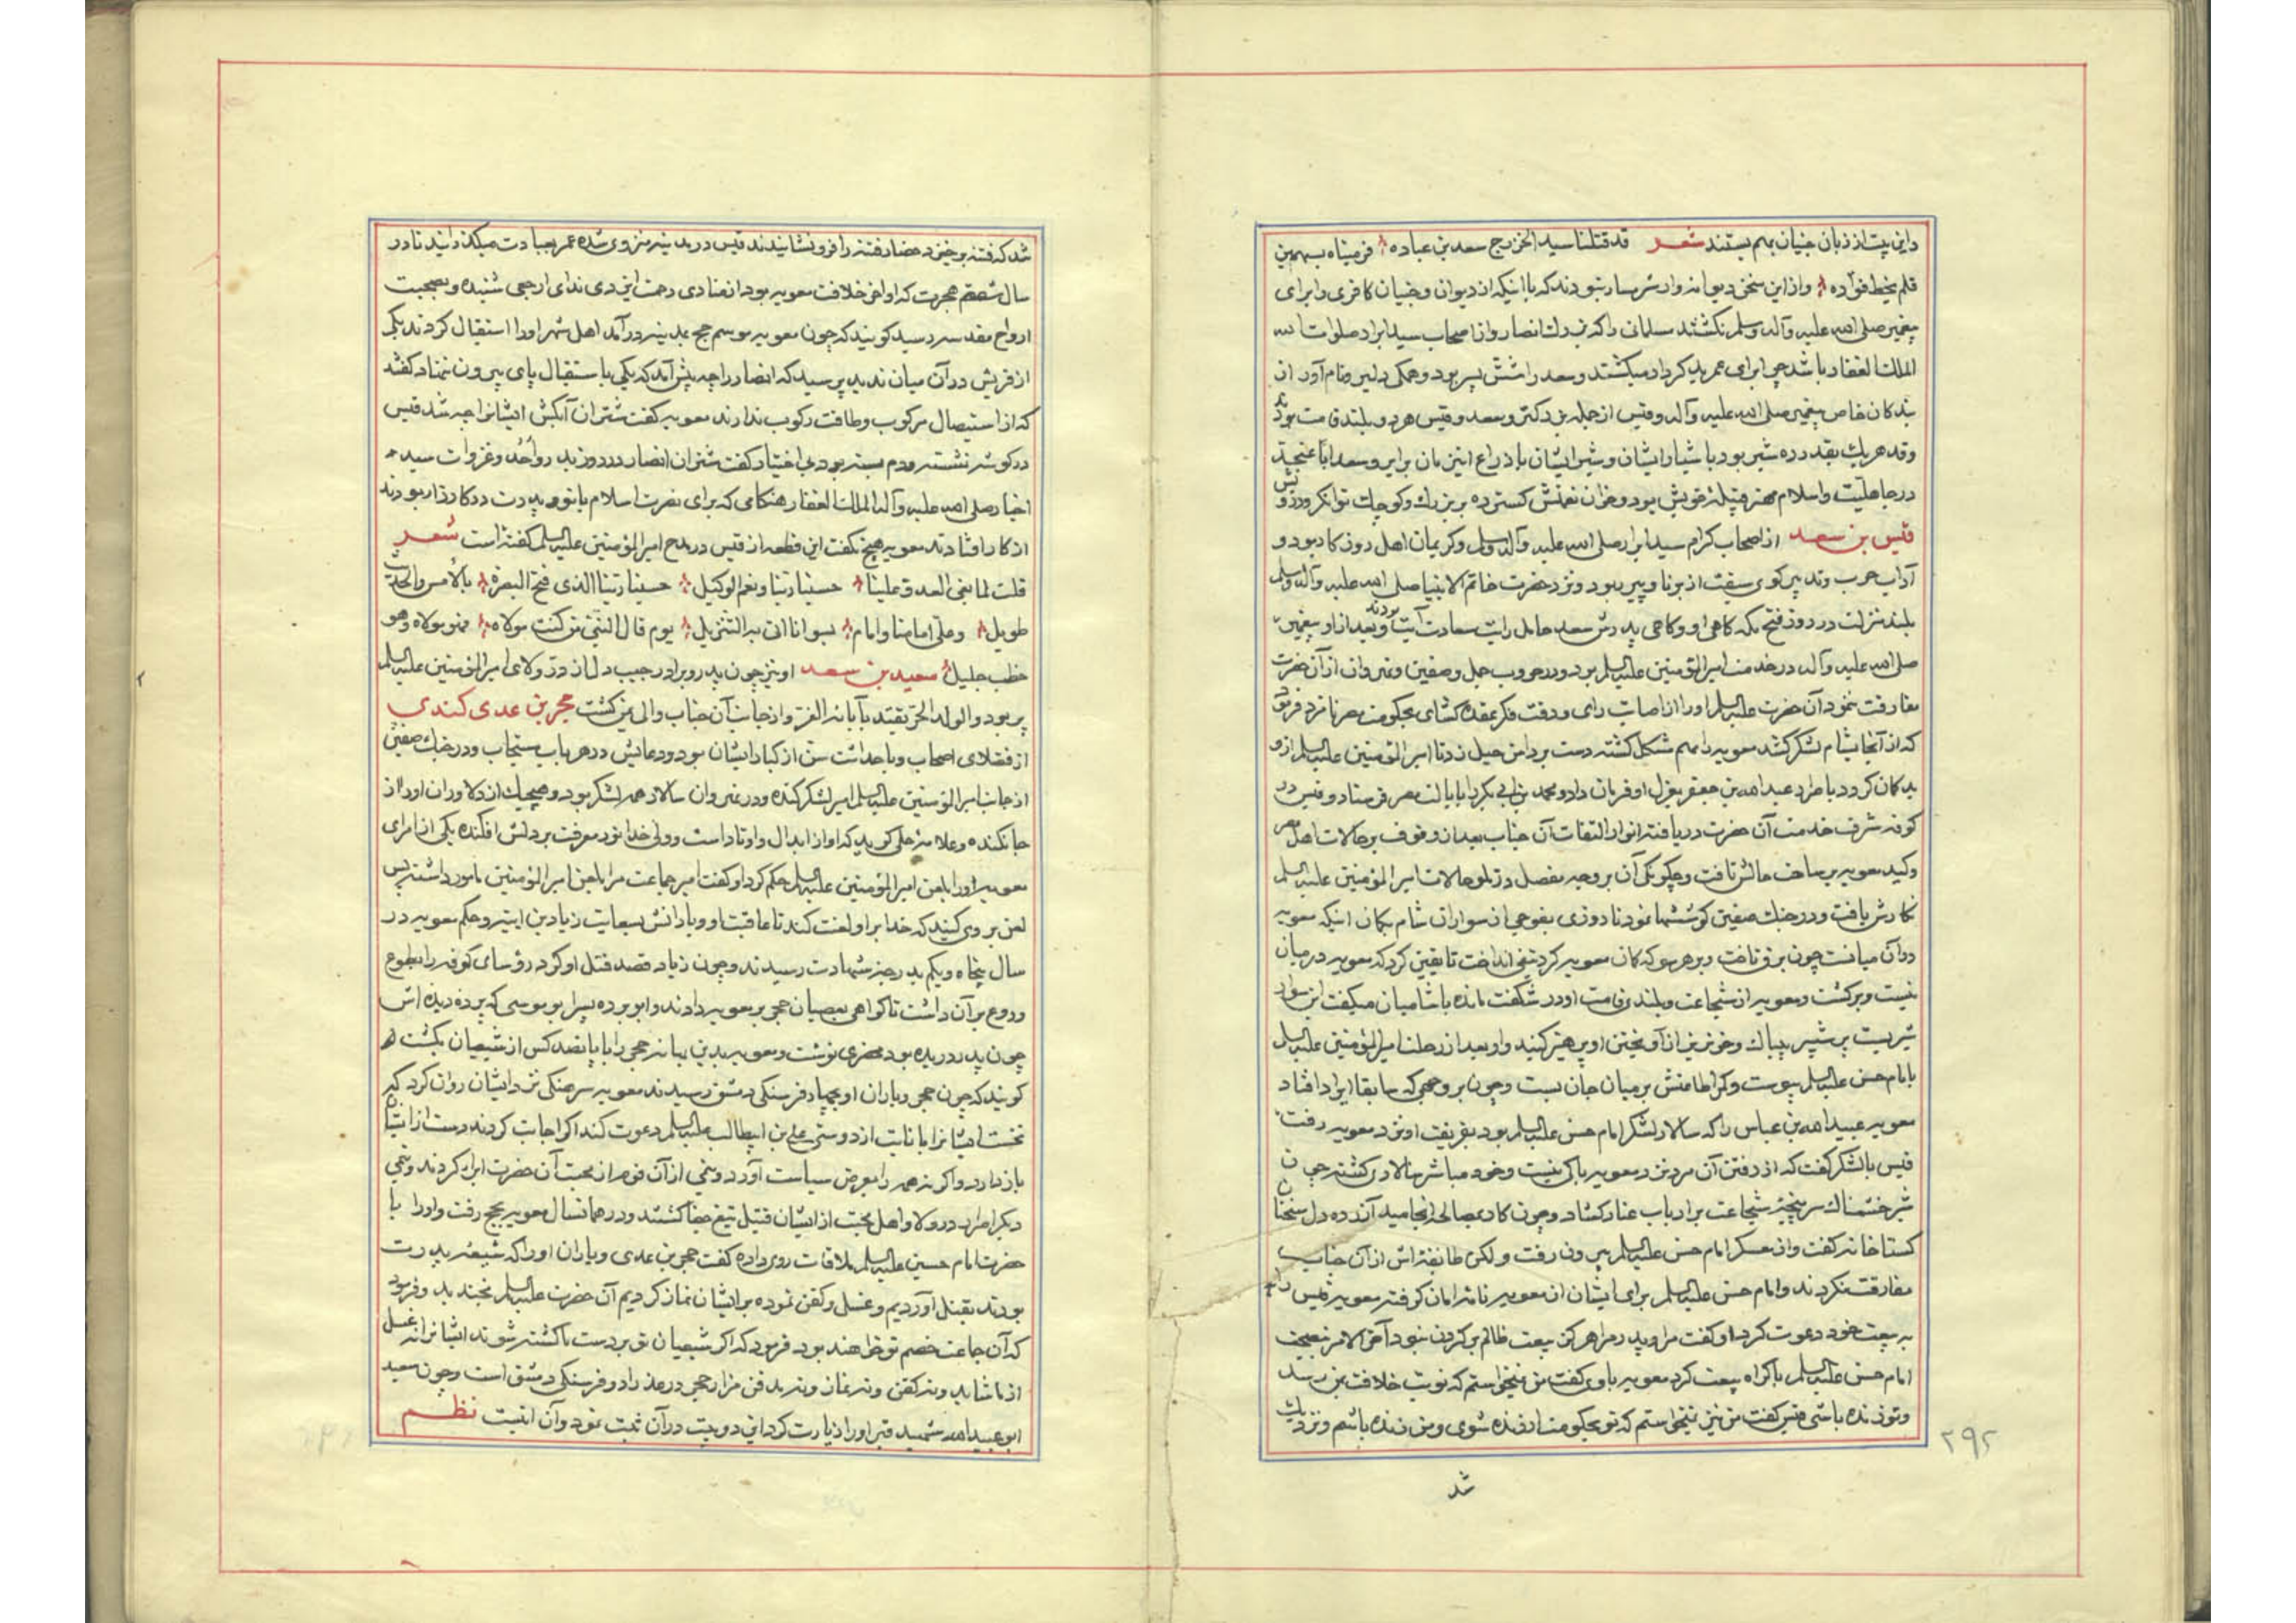 واین بیت از زبان جنیان بهم بستند شعر قد قتلنا سید الخزرج سعد بن عباده فرمیناه بسهمین
فلم نخط فؤاده واز این سخن دیوانه وار شرمسار نبودند که با اینکه از دیوان وجنیان کافری را برای
پیغمبر صلی الله علیه وآله وسلم نکشتند مسلمانی را که بزرك انصار واز اصحاب سید ابرار صلوات الله
الملك الغفار باشد چرا برای عمر بد کردار میکشتند وسعد را شش پسر بود وهمکی دلیر ونام آور از
بندکان خاص پیغمبر صلی الله علیه وآله وقیس از جمله بزرکتر وسعد وقیس هر دو بلند قامت بودند
وقد هریك بقدر ده شبر بود باشبار ایشان وشبر ایشان با ذراع این زمان برابر وسعد اباً عنجد
در جاهلیت واسلام مهتر قبیله خویش بود وخوان نعمتش کسترده بر بزرك وکوچك توانکر ودرویش
قیس بن سعد از اصحاب کرام سید ابرار صلی الله علیه وآله وسلم وکریمان اهل روزکار بود و
آداب حرب وتدبیر کوی سبقت از برنا وپیر ربود ونزد حضرت خاتم الانبیا صلی الله علیه وآله وسلم
بلند منزلت در روز فتح مکه کاهی او وکاهی پدرش سعد حامل رایت سعادت آیت بودند وبعد از او پیغمبر
صلی الله علیه وآله در خدمت امیرالمؤمنین علیه السلم بود ودر حروب جمل وصفین ونهروان از آن حضرت
مفارقت ننمود آن حضرت علیه السلم او را از اصابت رای ودقت فکر عقده کشای بحکومت مصر نامزد فرمود
که از آنجا بشام لشکر کشد معویه را مهم مشکل کشته دست بر دامن حیل زد تا امیرالمؤمنین علیه السلم از او
بد کمان کردد باطراد عبدالله بن جعفر بعزل او فرمان داد ومحمد بن ابی بکر را بایالت مصر فرستاد وقیس در
کوفه شرف خدمت آن حضرت دریافته انوار التفات آن جناب بعد از وقوف بر حالات اهل مصر
وکید معویه بر ساحت حالش تافت وچکونکی آن بر وجه مفصل در تلو حالات امیرالمؤمنین علیه السلم
نکارش یافت ودر جنك صفین کوششها نمود تا روزی بفوجی از سواران شام بکمان اینکه معویه
در آن میانست چون برق تاخت وبر هر سو که کمان معویه کرد تیغ انداخت تا یقین کرد که معویه در میان
نیست وبرکشت ومعویه از شجاعت وبلندی قامت او در شکفت مانده با شامیان میکفت این سوار
شیریست پرستیز بیباك وخونریز از آویختن او پرهیز کنید واو بعد از رحلت امیرالمؤمنین علیه السلم
بامام حسن علیه السلم پیوست وکمر اطاعتش بر میان جان بست وچون بر وجهی که سابقا ایراد افتاد
معویه عبیدالله بن عباس را که سالار لشکر امام حسن علیه السلم بود بفریفت او نزد معویه رفت
قیس با لشکر کفت که از رفتن آن مرد نزد معویه باکی نیست وخود مباشر سالاری کشته چون
شیر خشمناك سرپنجه شجاعت بر ارباب عناد کشاد وچون کار بمصالحه انجامید آزرده دل سخنان
کستاخانه کفت واز معسکر امام حسن علیه السلم بیرون رفت ولکن طایفه اش از آن جناب
مفارقت نکردند وامام حسن علیه السلم برای ایشان از معویه نامه امان کرفته معویه قیس را
به بیعت خود دعوت کرد او کفت مرا وپدر مرا هرکز بیعت ظالم بر کردن نبود آخر الامر بنصیحت
امام حسن علیه السلم باکراه بیعت کرد معویه باوی کفت من نمیخواستم که نوبت خلافت بمن رسد
وتو زنده باشی قیس کفت من نیز نمیخواستم که تو بحکومت ارزنده شوی ومن زنده باشم ونزدیك
شد
۲۹۲
شد که فتنه برخیزد حضار فتنه را فرو نشانیدند قیس در مدینه منزوی شده عمر بعبادت میکذرانید تا در
سال شصتم هجرت که اواخر خلافت معویه بود از منادی رحمت ایزدی ندای ارجعی شنیده وبصحبت
ارواح مقدسه رسید کویند که چون معویه بموسم حج بمدینه درآمد اهل شهر او را استقبال کردند یکی
از قریش در آن میان ندید پرسید که انصار را چه پیش آمد که یکی باستقبال پای بیرون ننهاد کفتند
که از استیصال مرکوب وطاقت رکوب ندارند معویه کفت شتران آبکش ایشانرا چه شد قیس
در کوشه نشسته ودم بسته بود بی اختیار کفت شتران انصار در روز بدر واحد وغزوات سید
اخیار صلی الله علیه وآله الملك الغفار هنکامی که برای نصرت اسلام با تو وپدرت در کارزار بودند
از کار افتادند معویه هیچ نکفت این قطعه از قیس در مدح امیرالمؤمنین علیه السلم کفته است شعر
قلت لما بغی العدو علینا حسبنا ربنا ونعم الوکیل حسبنا ربنا الذی فتح البصره بالأمس والحدیث
طویل وعلی امامنا وامام لسوانا اتی به التنزیل یوم قال النبی من کنت مولاه فهو مولاه وهو
خطب جلیل سعید بن سعد او نیز چون پدر وبرادر جیب دل از در ولای امیرالمؤمنین علیه السلم
پر بود والولد الحر یقتدی بآبائه الغر واز جانب آن جناب والی یمن کشت حجر بن عدی کندی
از فضلای اصحاب وبا حداثت سن از کبار ایشان بود ودعایش در هر باب مستجاب ودر جنك صفین
از جانب امیرالمؤمنین علیه السلم امیر لشکر کنده ودر نهروان سالار همه لشکر بود وهیچیك از دلاوران او را از
جا نکنده وعلامه حلی کوید که او از ابدال واوتاد است وولی خدا نور معرفت بر دلش افکنده یکی از امرای
معویه او را بلعن امیرالمؤمنین علیه السلم حکم کرد او کفت امیر جماعت مرا بلعن امیرالمؤمنین مامور داشته پس
لعن بر وی کنید که خدا بر او لعنت کند تا عاقبت او ویارانش بسعایت زیاد بن ابیه وحکم معویه در
سال پنجاه ویکم بدرجه شهادت رسیدند وچون زیاد قصد قتل او کرد رؤسای کوفه را بطوع
ودروع بر آن داشت تا کواهی بعصیان حجر بر معویه دادند وابو برده پسر ابو موسی که پرده دیده اش
چون پدر دریده بود محضری نوشت ومعویه بدین بهانه حجر را با پانصد کس از شیعیان بکشت
کویند که چون حجر ویاران او بچهار فرسنکی دمشق رسیدند معویه سرهنکی نزد ایشان روان کرد که
نخست ایشانرا بانابت از دوستی علی بن ابیطالب علیه السلم دعوت کند اکر اجابت کردند دست از ایشان
باز دارد واکر نه همه را بمعرض سیاست آورد وبرخی از آن قوم از محبت آن حضرت ابراء کردند وبرخی
دیکر اصرار در ولا واهل محبت از ایشان قتیل تیغ جفا کشتند ودر همانسال معویه بحج رفت واو را با
حضرت امام حسین علیه السلم ملاقات روی داده کفت حجر بن عدی ویاران او را که شیعه پدرت
بودند بقتل آوردیم وغسل وکفن نموده بر ایشان نماز کردیم آن حضرت علیه السلم بخندید وفرمود
که آن جماعت خصم تو خواهند بود فرمود که اکر شیعیان تو بر دست ما کشته شوند ایشانرا نه غسل
از ما شاید ونه کفن ونه نماز ونه دفن مزار حجر در عذرا دو فرسنکی دمشق است وچون سعید
ابو عبیدالله شهید قبر او را زیارت کرد این دو بیت در آن ثبت نمود وآن اینست نظم